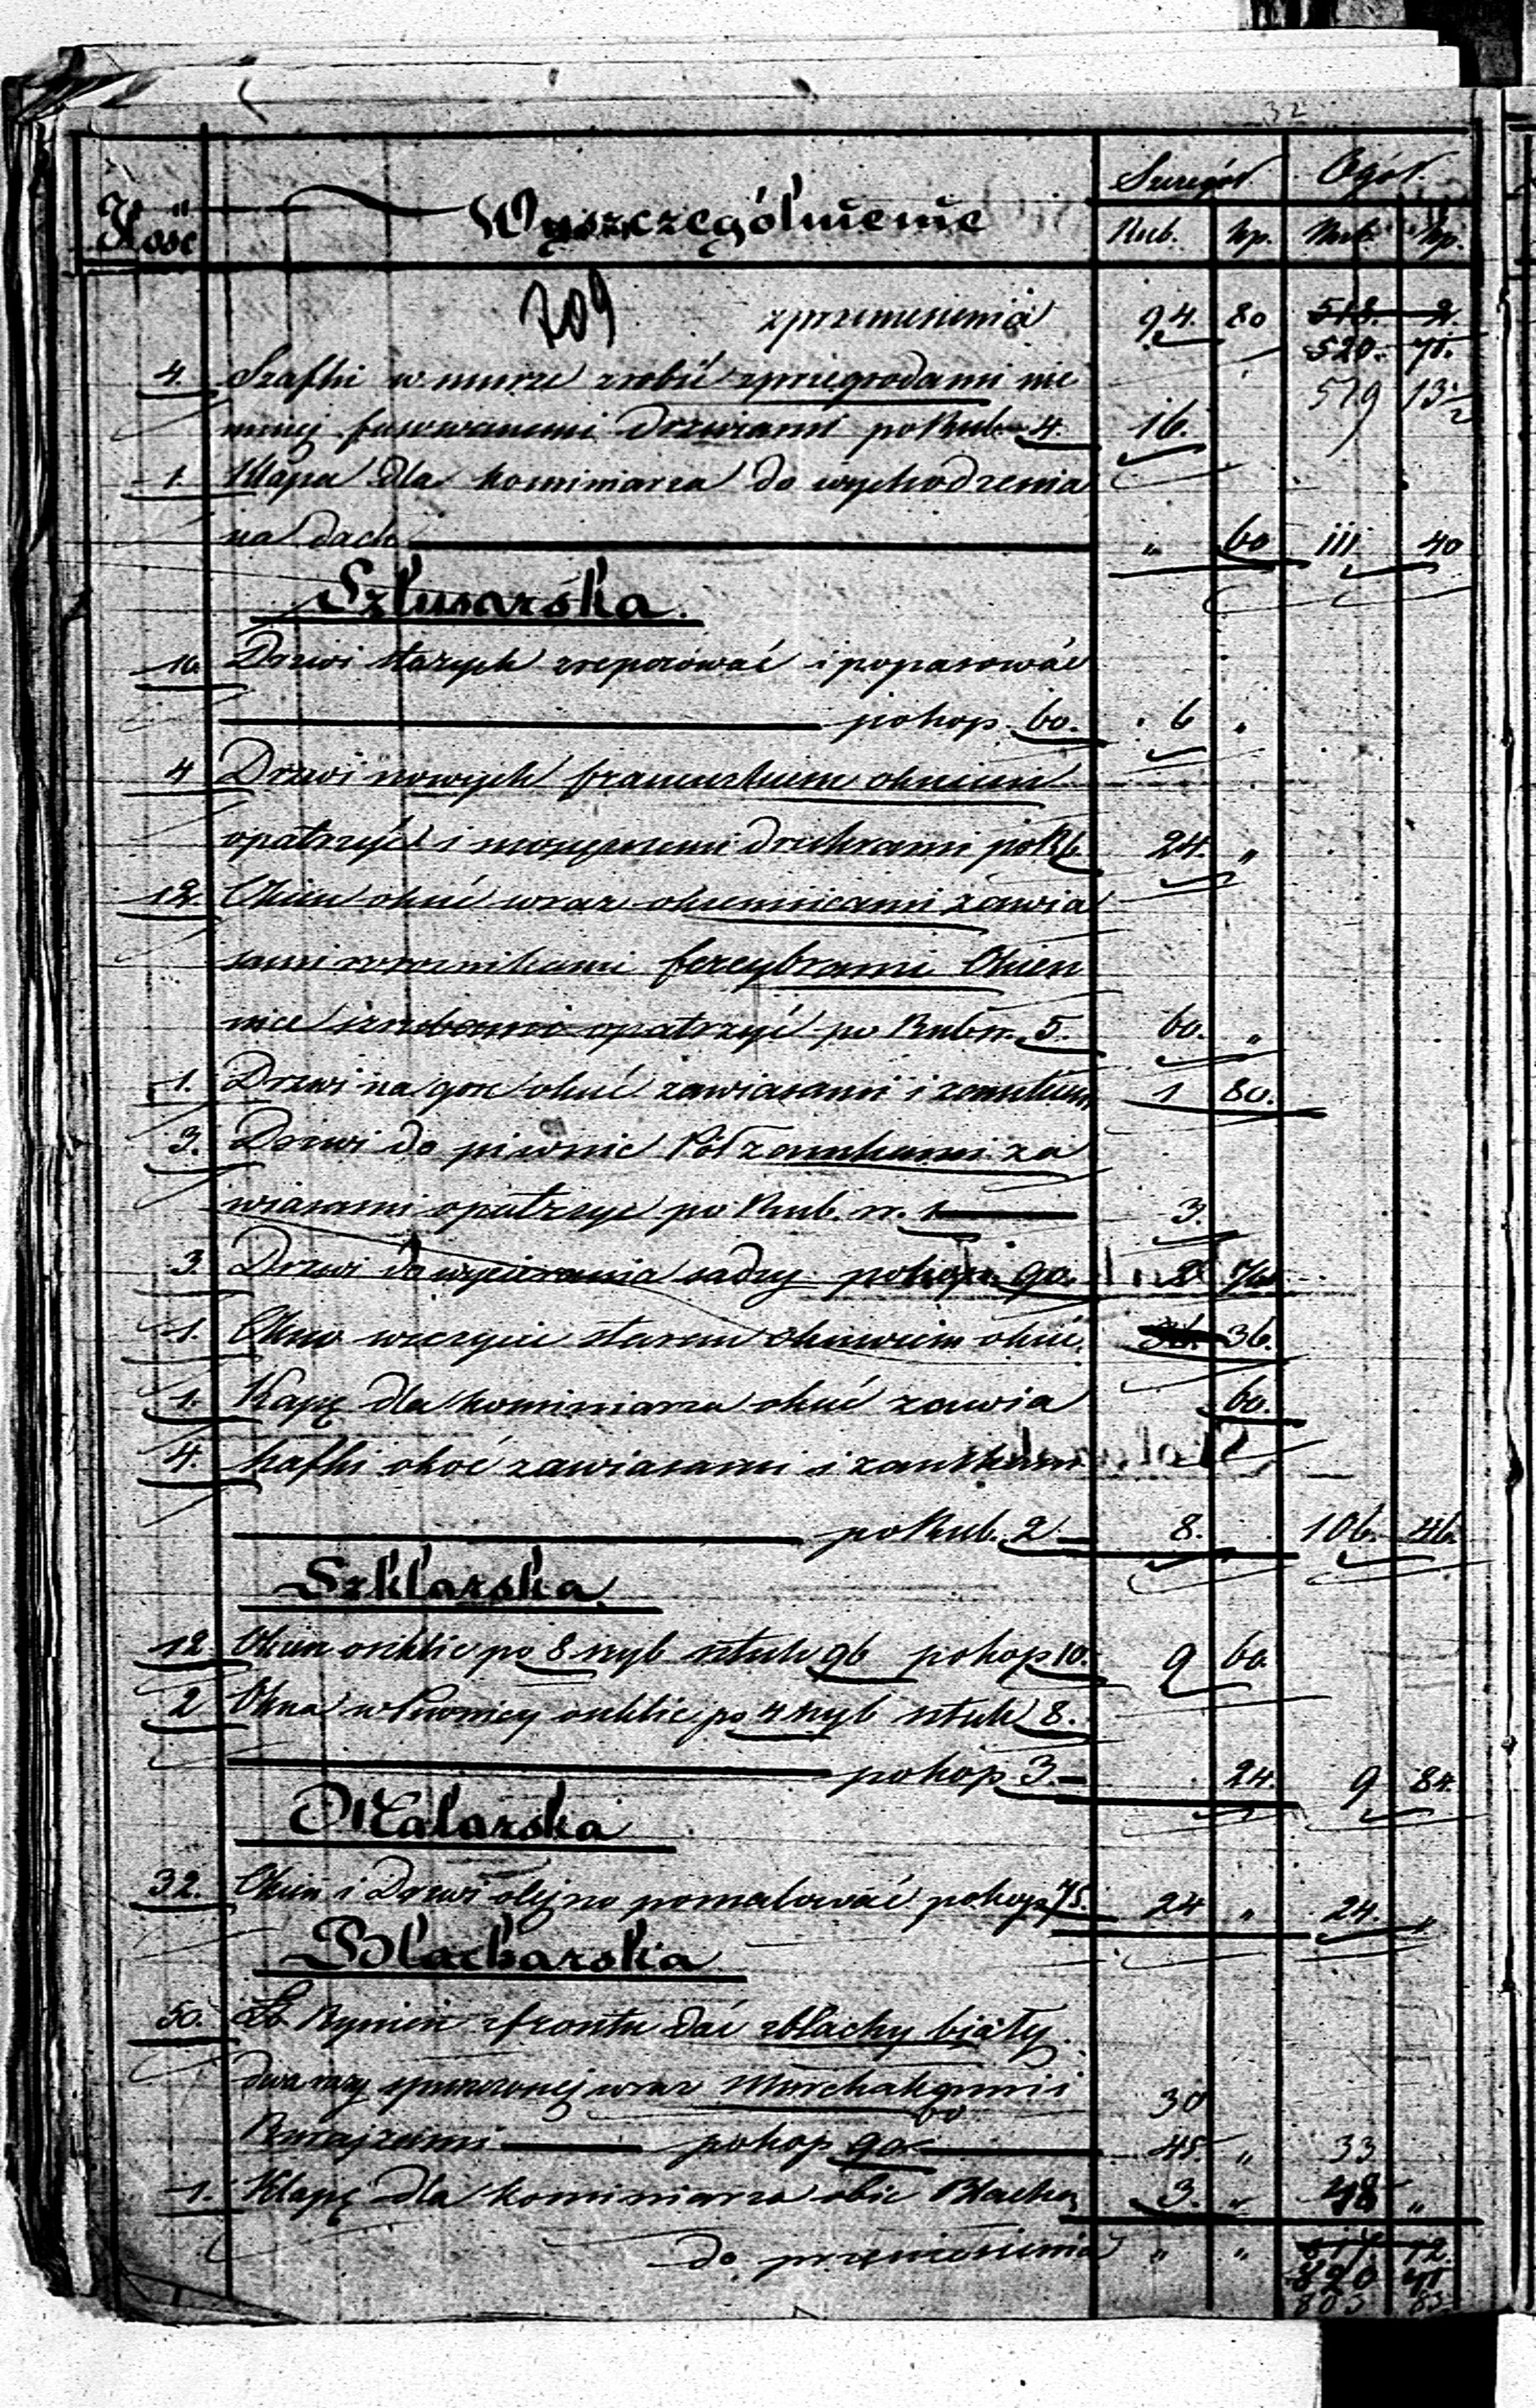 32
Ilość Wyszczególnienie Szczegół. Ogół.
Rub. kp. Rub. kp.
709 z przeniesienia 94. 80 518. 2.
520. 71.
4. Szafki w murze zrobić z przegrodami nie 519 13 1/2
mniej fusowanemi Drzwiami po Rub. 4. 16.
1. Klapa dla kominiarza do wychodzenia
na dach " 60 111 40
Szlusarska.
10. Drzwi starych zreperować i popasować
po kop. 60. 6 "
4 Drzwi nowych francuzkiem okuciem
opatrzyć i mosiężnemi drukrami po Rb 6 24. "
12. Okien okuć wraz okiennicami zawia
sami narożnikami forcybrami Okien
nice śrubami opatrzyć po Rub. sr. 5. 60. "
1. Drzwi na górę okuć zawiasami i zamkiem 1 80.
3. Drzwi do piwnic Pół zamkami za
wiasami opatrzyć po Rub. sr. 1 3.
3. Drzwi do wycierania sadzy po kop. 90. 2 70
1. Okno w szczycie starem okuwciem okuć. 36.
1. Kapę dla kominiarza okuć zawia 60.
4. szafki okoć zawiasami i zamkkiem
po Rub. 2 8. 106. 46.
Szklarska.
12. Okien osklić po 8 szyb sztuk 96 po kop 10. 9 60.
2 Okna w Piwnicy osklić po 4 szyb sztuk 8.
po kop 3. 24. 9 84.
Malarska
32. Okien i Drzwi olejno pomalować po kop. 75. 24 " 24. "
Blacharska
50. Łb. Rynien z frontu dać z blachy białej
dwa razy spuszczonej wraz
60 30
po kop 90. 45. " 33
1. Klapę dla kominiarza obić Blachą 3. " 48 "
do przeniesienia " " 817. 72.
820 41
803 83